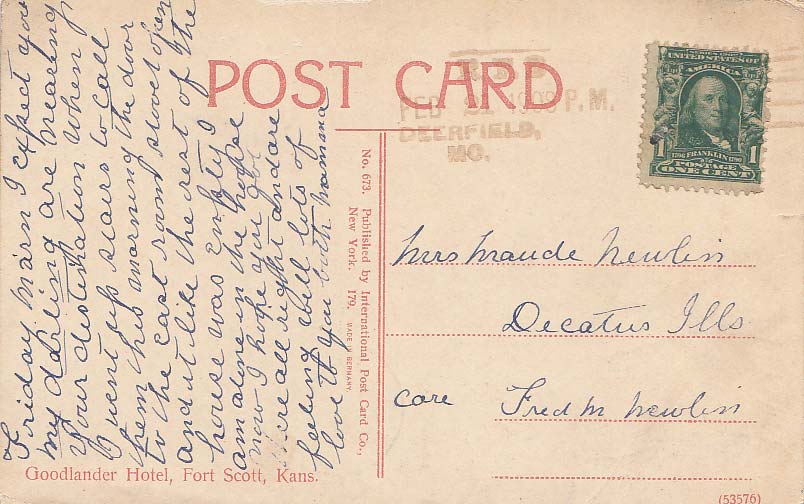 POST CARD
R.F.D.
FEB 21 1908 P.M.
DEERFIELD,
MO.
UNITED STATES OF
AMERICA
1 1706 FRANKLIN 1790 1
POSTAGE
ONE CENT
Friday marn I expect you
my darling are nearing
your distination when
I went up stairs to call
them this marning the door
to the east room stood open
and it like the rest of the
house was Empty I
am alone in the house
now I hope you got
there all right and are
feeling well lots of
love to you both mamma
No. 673. Published by International Post Card Co.,
New York. 179. MADE IN GERMANY.
Mrs Maude Newlin
Decatur Ills
care Fred M Newlin
Goodlander Hotel, Fort Scott, Kans.
(53576)